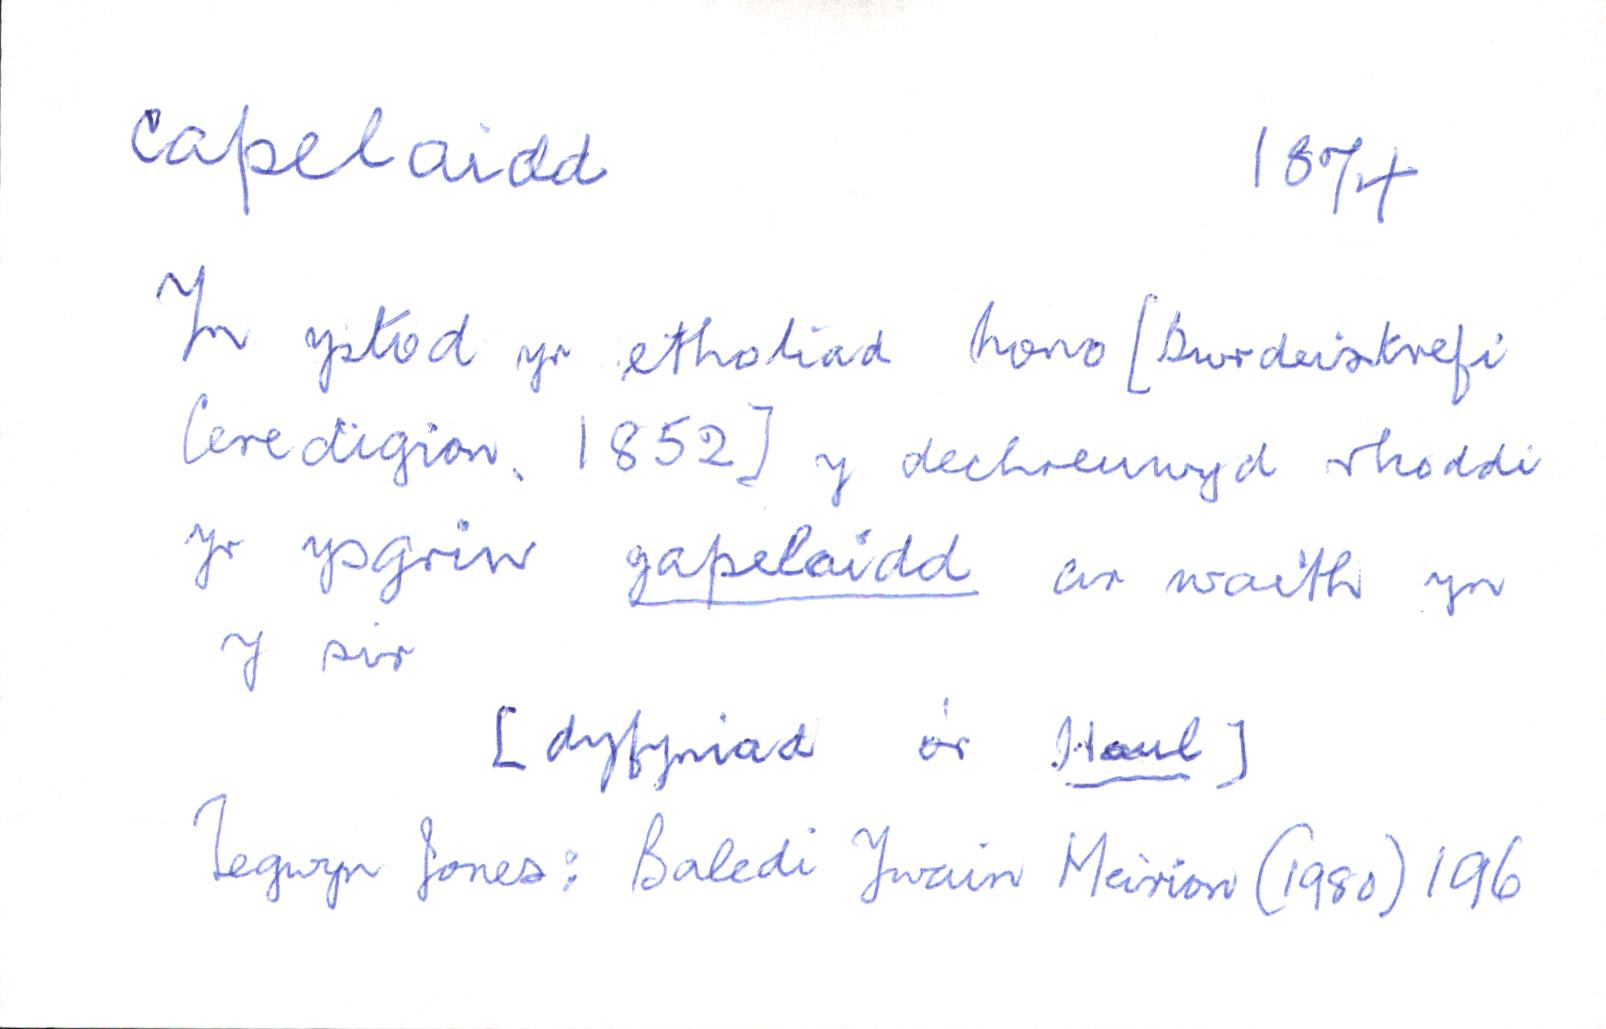 capelaidd 1874
Yn ystod yr etholiad hono [Bwrdeistrefi
Ceredigion, 1852] y dechreuwyd rhoddi
yr ysgriw gapelaidd ar waith yn
y sir
[dyfyniad o'r Haul]
Tegwyn Jones: Baledi Ywain Meirion (1980) 196